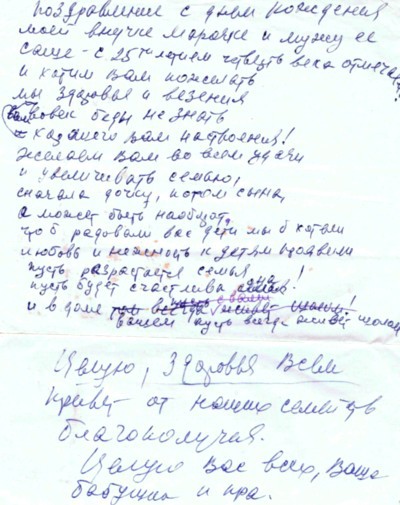 Поздравление с днем рождения
моей внучке Марочке и мужу ее
Саше - с 25ти летием четверть века отмечать
и хотим Вам пожелать
мы здоровье и везения
Вовек беды не знать
Вам настроения!
желаем Вам во всем удачи
и увеличивать семью,
сначала дочку, потом сына,
а может быть наоборот,
чтоб радовали вас дети мы б хотели
любовь и нежность к детям
пусть разрастается семья!
пусть будет счастлива она
и в доме
вашем пусть всегда живет
Целую, Здоровья Всем
привет от наших семейств
благополучия.
Целую Вас всех, Ваша
бабушка и пра.